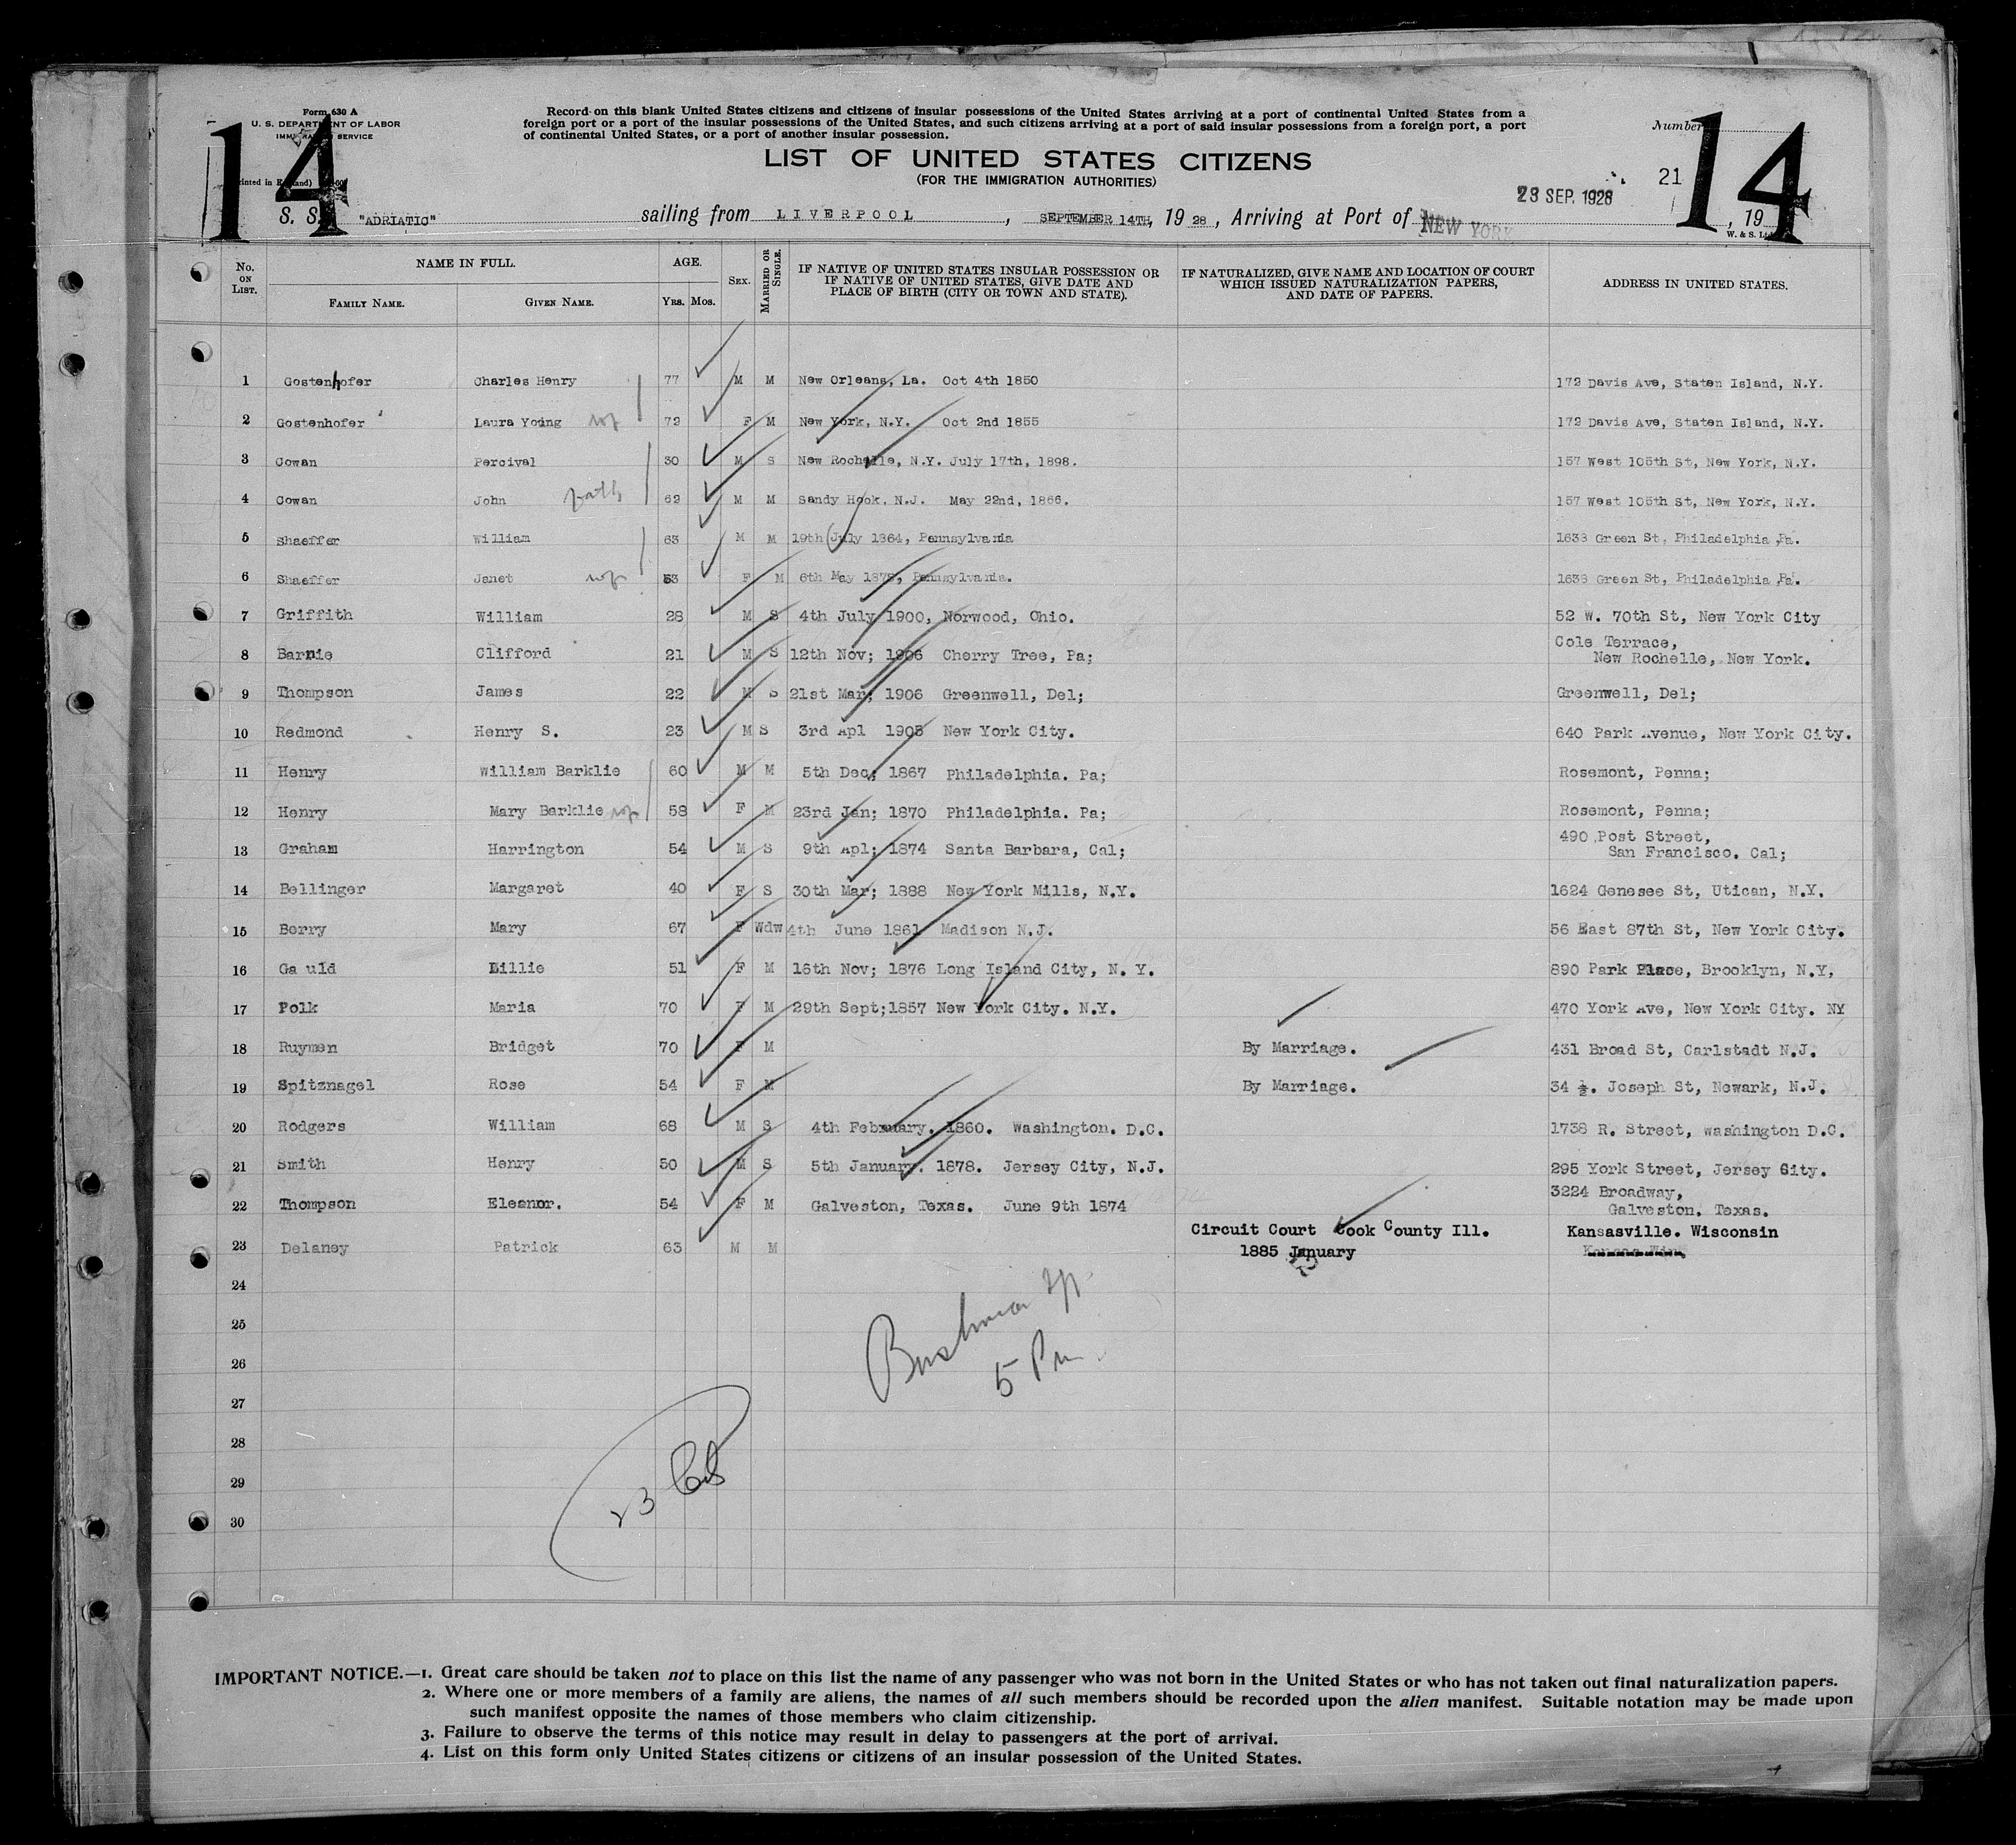 Form 630 A
U. S. DEPARTMENT OF LABOR
IMMIGRATION SERVICE
14
Record on this blank United States citizens and citizens of insular possessions of the United States arriving at a port of continental United States from a
foreign port or a port of the insular possessions of the United States, and such citizens arriving at a port of said insular possessions from a foreign port, a port
of continental United States, or a port of another insular possession.
Number
14
LIST OF UNITED STATES CITIZENS
(FOR THE IMMIGRATION AUTHORITIES)
21
23 SEP. 1928
S. S. "ADRIATIC" sailing from LIVERPOOL, SEPTEMBER 14TH, 19 28, Arriving at Port of NEW YORK, 19
W. & S. Ltd
No. ON LIST. NAME IN FULL. FAMILY NAME. GIVEN NAME. AGE. YRS. MOS. SEX. MARRIED OR SINGLE. IF NATIVE OF UNITED STATES INSULAR POSSESSION OR IF NATIVE OF UNITED STATES, GIVE DATE AND PLACE OF BIRTH (CITY OR TOWN AND STATE). IF NATURALIZED, GIVE NAME AND LOCATION OF COURT WHICH ISSUED NATURALIZATION PAPERS, AND DATE OF PAPERS. ADDRESS IN UNITED STATES.
1 Gostenhofer Charles Henry 77 M M New Orleans, La. Oct 4th 1850 172 Davis Ave, Staten Island, N.Y.
2 Gostenhofer Laura Young 72 F M New York, N.Y. Oct 2nd 1855 172 Davis Ave, Staten Island, N.Y.
3 Cowan Percival 30 M S New Rochelle, N.Y. July 17th, 1898. 157 West 105th St, New York, N.Y.
4 Cowan John 62 M M Sandy Hook, N.J. May 22nd, 1866. 157 West 105th St, New York, N.Y.
5 Shaeffer William 63 M M 19th July 1864, Pennsylvania 1638 Green St, Philadelphia, Pa.
6 Shaeffer Janet 53 F M 6th May 1875, Pennsylvania. 1638 Green St, Philadelphia, Pa.
7 Griffith William 28 M S 4th July 1900, Norwood, Ohio. 52 W. 70th St, New York City
8 Barnie Clifford 21 M S 12th Nov; 1906 Cherry Tree, Pa; Cole Terrace,
New Rochelle, New York.
9 Thompson James 22 M S 21st Mar; 1906 Greenwell, Del; Greenwell, Del;
10 Redmond Henry S. 23 M S 3rd Apl 1905 New York City. 640 Park Avenue, New York City.
11 Henry William Barklie 60 M M 5th Dec; 1867 Philadelphia. Pa; Rosemont, Penna;
12 Henry Mary Barklie 58 F M 23rd Jan; 1870 Philadelphia. Pa; Rosemont, Penna;
13 Graham Harrington 54 M S 9th Apl; 1874 Santa Barbara, Cal; 490 Post Street,
San Francisco. Cal;
14 Bellinger Margaret 40 F S 30th Mar; 1888 New York Mills, N.Y. 1624 Genesee St, Utican, N.Y.
15 Berry Mary 67 F Wdw 4th June 1861 Madison N.J. 56 East 87th St, New York City.
16 Ga uld Lillie 51 F M 16th Nov; 1876 Long Island City, N. Y. 890 Park Place, Brooklyn, N.Y,
17 Polk Maria 70 F M 29th Sept;1857 New York City. N.Y. 470 York Ave, New York City. NY
18 Ruymen Bridget 70 F M By Marriage. 431 Broad St, Carlstadt N.J.
19 Spitznagel Rose 54 F M By Marriage. 34 ½. Joseph St, Newark, N.J.
20 Rodgers William 68 M S 4th February. 1860. Washington. D.C. 1738 R. Street, Washington D.C.
21 Smith Henry 50 M S 5th January. 1878. Jersey City, N.J. 295 York Street, Jersey City.
22 Thompson Eleanor. 54 F M Galveston, Texas. June 9th 1874 3224 Broadway,
Galveston. Texas.
23 Delaney Patrick 63 M M Circuit Court Cook County Ill. Kansasville. Wisconsin
1885 January
24
25
26
27
28
29
30
5 Pm
23
IMPORTANT NOTICE.—1. Great care should be taken not to place on this list the name of any passenger who was not born in the United States or who has not taken out final naturalization papers.
2. Where one or more members of a family are aliens, the names of all such members should be recorded upon the alien manifest. Suitable notation may be made upon
such manifest opposite the names of those members who claim citizenship.
3. Failure to observe the terms of this notice may result in delay to passengers at the port of arrival.
4. List on this form only United States citizens or citizens of an insular possession of the United States.